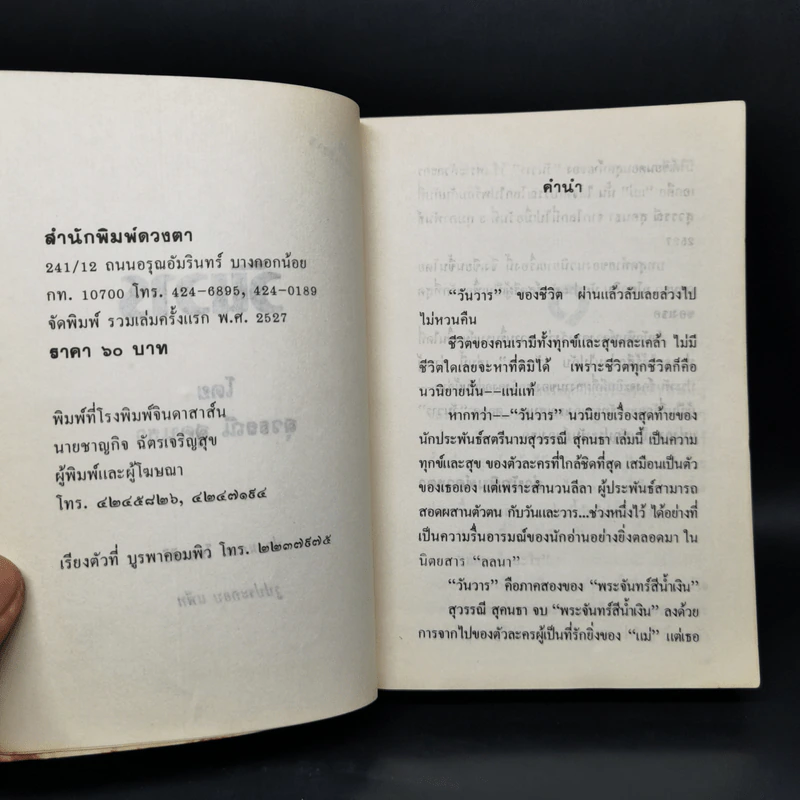 สำนักพิมพ์ดวงตา
241/12 ถนนอรุณอัมรินทร์ บางกอกน้อย
กท. 10700 โทร. 424-6895, 424-0189
จัดพิมพ์ รวมเล่มครั้งแรก พ.ศ. 2527
ราคา ๖๐ บาท
พิมพ์ที่โรงพิมพ์จินดาสาส์น
นายชาญกิจ ฉัตรเจริญสุข
ผู้พิมพ์และผู้โฆษณา
โทร. ๔๒๔๕๘๒๖, ๔๒๔๗๑๙๔
เรียงตัวที่ บูรพาคอมพิว โทร. ๒๒๓๗๙๗๕
คำนำ
“วันวาร” ของชีวิต ผ่านแล้วลับเลยล่วงไป
ไม่หวนคืน
ชีวิตของคนเรามีทั้งทุกข์และสุขคละเคล้า ไม่มี
ชีวิตใดเลยจะหาที่ติมิได้ เพราะชีวิตทุกชีวิตก็คือ
นวนิยายนั้น--แน่แท้
หากทว่า--“วันวาร” นวนิยายเรื่องสุดท้ายของ
นักประพันธ์สตรีนามสุวรรณี สุคนธา เล่มนี้ เป็นความ
ทุกข์และสุข ของตัวละครที่ใกล้ชิดที่สุด เสมือนเป็นตัว
ของเธอเอง แต่เพราะสำนวนลีลา ผู้ประพันธ์สามารถ
สอดผสานตัวตน กับวันและวาร...ช่วงหนึ่งไว้ ได้อย่างที่
เป็นความรื่นอารมณ์ของนักอ่านอย่างยิ่งตลอดมา ใน
นิตยสาร “ลลนา”
“วันวาร” คือภาคสองของ “พระจันทร์สีน้ำเงิน”
สุวรรณี สุคนธา จบ “พระจันทร์สีน้ำเงิน” ลงด้วย
การจากไปของตัวละครผู้เป็นที่รักยิ่งของ “แม่” แต่เธอ